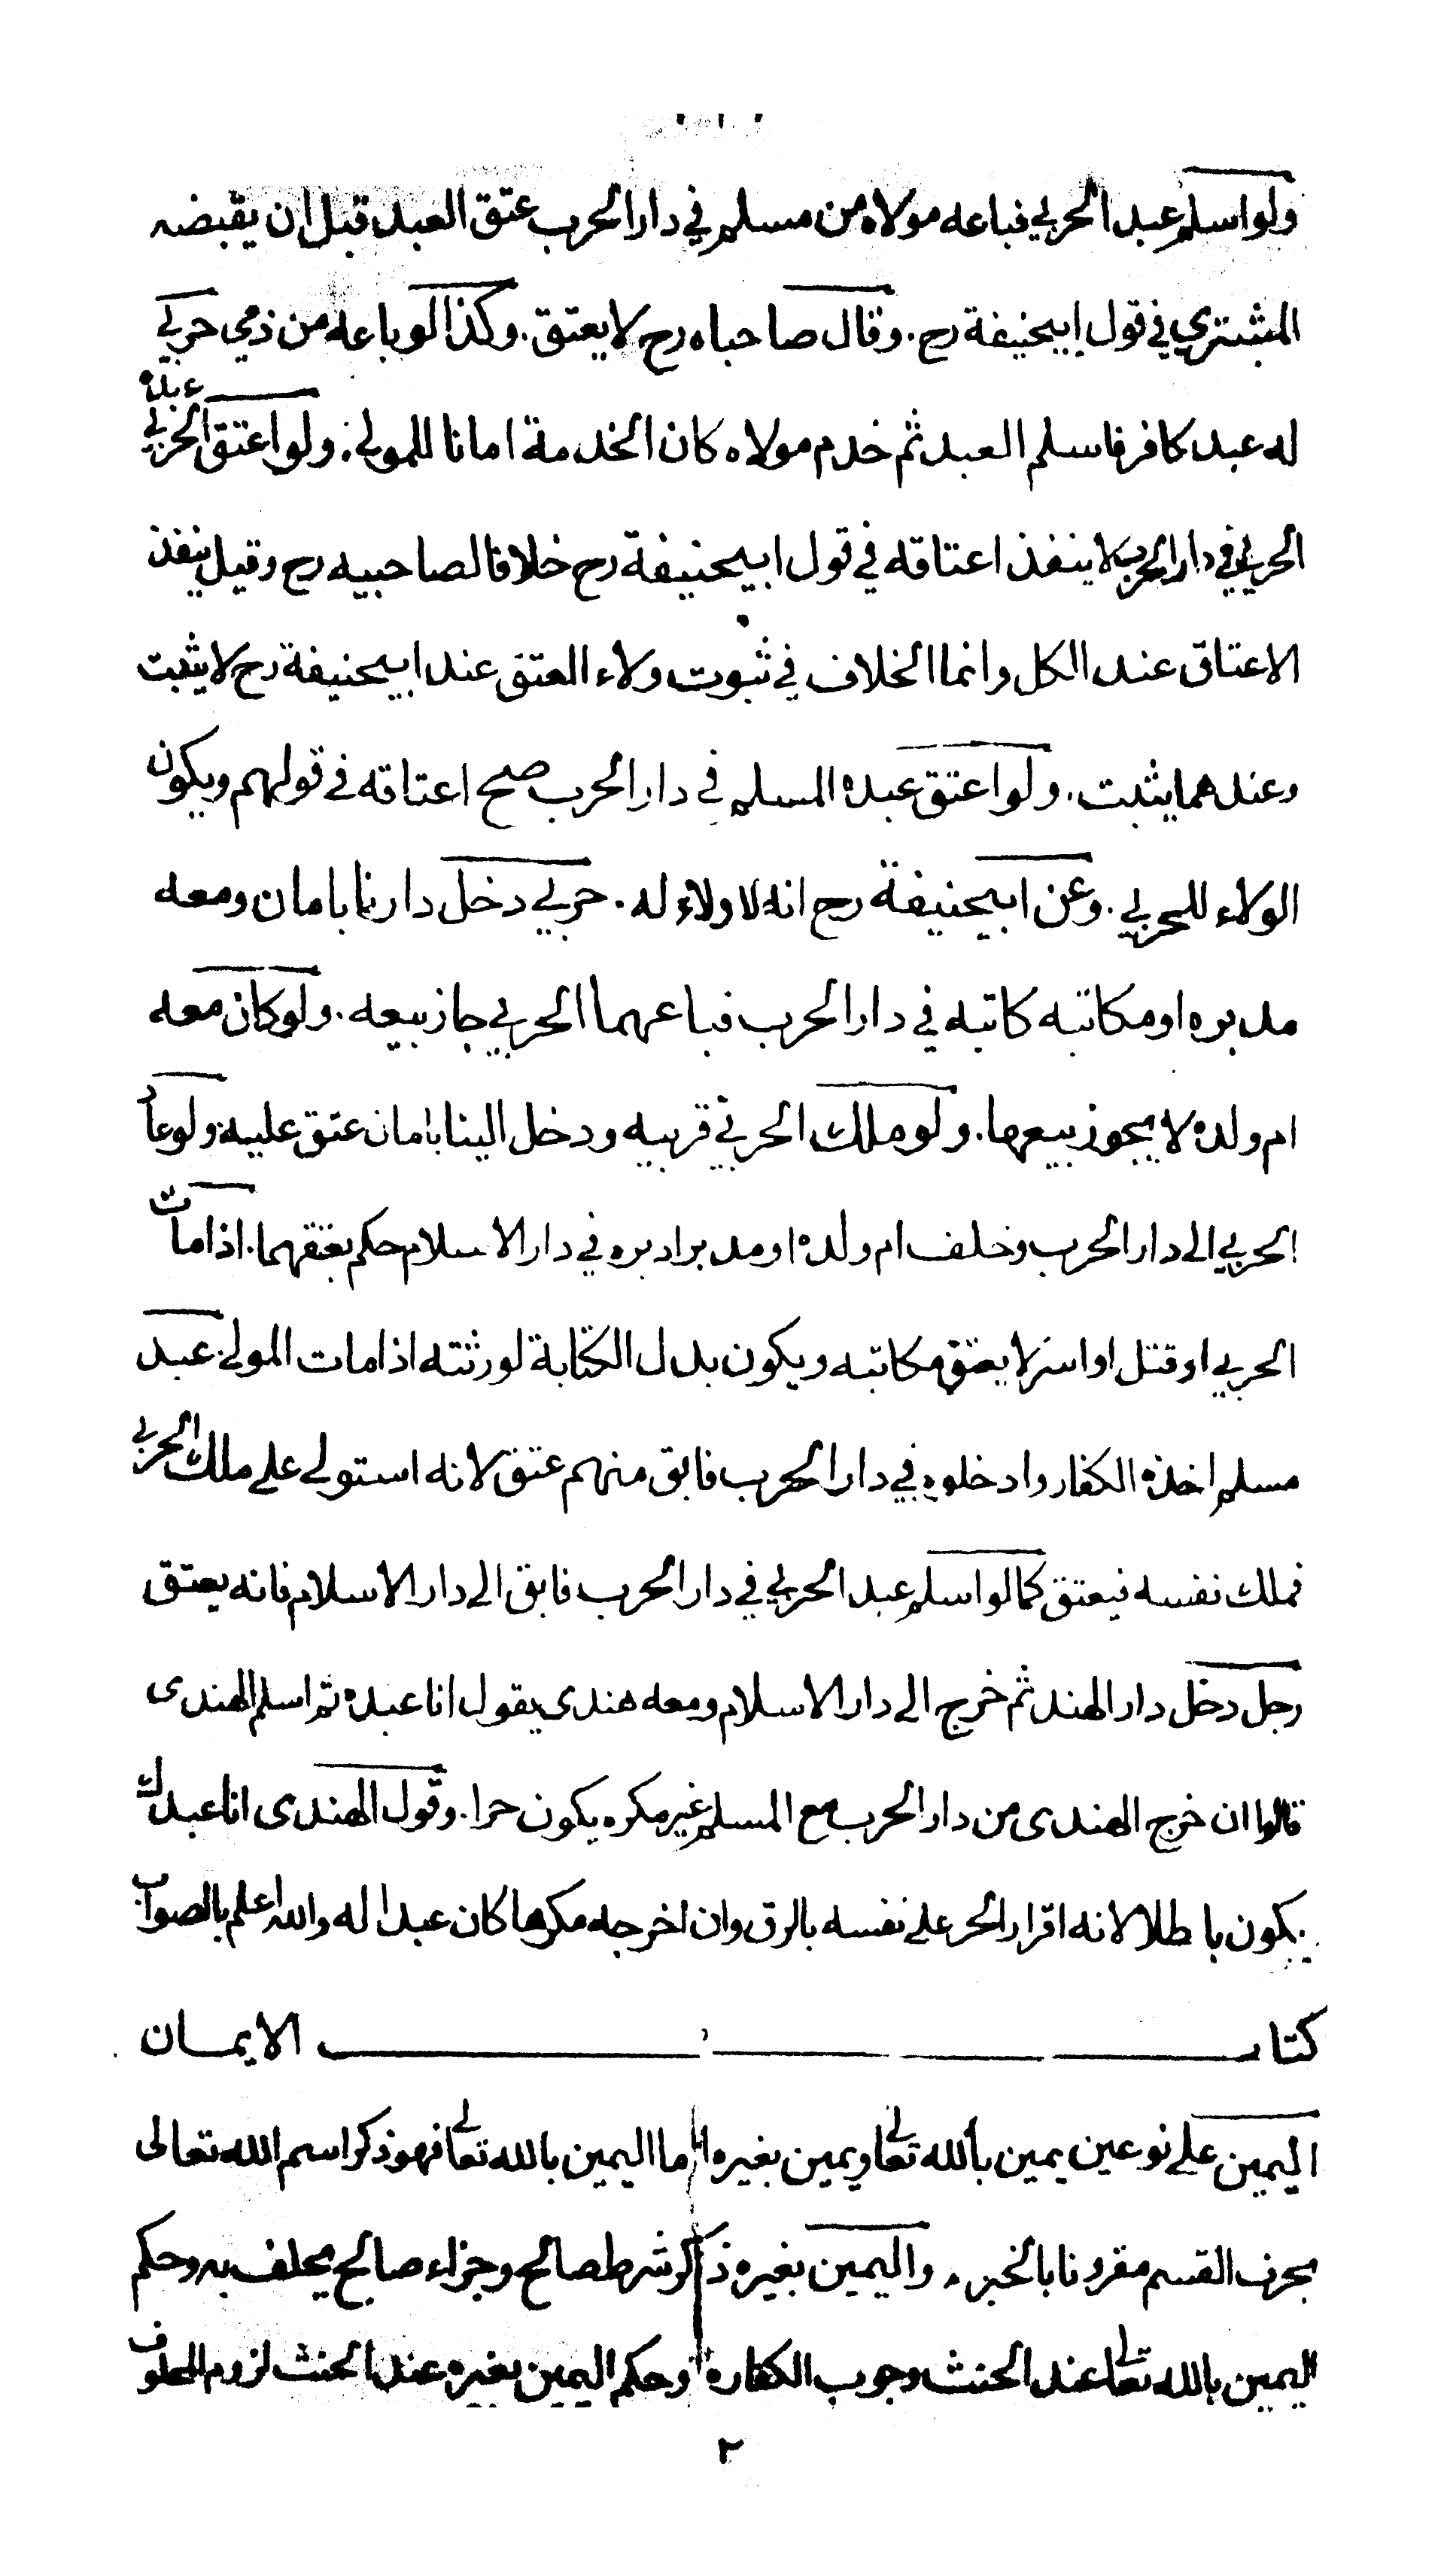 ولو اسلم عبد الحربي فباعه مولاه من مسلم في دار الحرب عتق العبد قبل ان يقبضه
المشتري في قول ابيحنيفة رح . وقال صاحباه رح لا يعتق . وكذا لو باعه من ذمي حربي
له عبد كافر فاسلم العبد ثم خدم مولاه كان الخدمة امانا للمولى . ولو اعتق الحربي عبده
الحربي في دار الحرب لا ينفذ اعتاقه في قول ابيحنيفة رح خلافا لصاحبيه رح وقيل ينفذ
الاعتاق عند الكل وانما الخلاف في ثبوت ولاء العتق عند ابيحنيفة رح لا يثبت
وعندهما يثبت . ولو اعتق عبده المسلم في دار الحرب صح اعتاقه في قولهم ويكون
الولاء للحربي . وعن ابيحنيفة رح انه لا ولاء له . حربي دخل دارنا بامان ومعه
مدبره او مكاتبه كاتبه في دار الحرب فباعهما الحربي جاز بيعه . ولو كان معه
ام ولده لا يجوز بيعها . ولو ملك الحربي قريبه ودخل الينا بامان عتق عليه ولو عاد
الحربي الى دار الحرب وخلف ام ولده او مدبرا دبره في دار الاسلام حكم بعتقهما . اذا مات
الحربي او قتل او اسر لا يعتق مكاتبه ويكون بدل الكتابة لورثته اذا مات المولى . عبد
مسلم اخذه الكفار وادخلوه في دار الحرب فابق منهم عتق لانه استولى على ملك الحربي
فملك نفسه فيعتق كما لو اسلم عبد الحربي في دار الحرب فابق الى دار الاسلام فانه يعتق
رجل دخل دار الهند ثم خرج الى دار الاسلام ومعه هندى يقول انا عبده ثم اسلم الهندى
قالوا ان خرج الهندى من دار الحرب مع المسلم غير مكره يكون حرا . وقول الهندى انا عبدك
يكون باطلا لانه اقرار الحر على نفسه بالرق وان اخرجه مكرها كان عبدا له والله اعلم بالصواب
كتاب الايمان
اليمين على نوعين يمين بالله تعالى ويمين بغيره اما اليمين بالله تعالى فهو ذكر اسم الله تعالى
بحرف القسم مقرونا بالخبر . واليمين بغيره ذكر شرط صالح وجزاء صالح يحلف به وحكم
اليمين بالله تعالى عند الحنث وجوب الكفاره وحكم اليمين بغيره عند الحنث لزوم المحلوف
٢